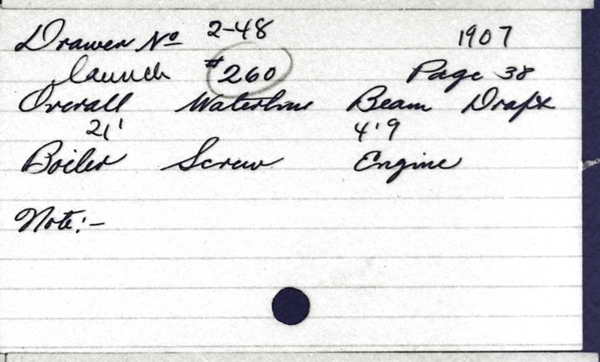 Drawer No 2-48 1907
launch #260 Page 38
Overall Waterline Beam Draft
21' 4'9
Boiler Screw Engine
Note:-